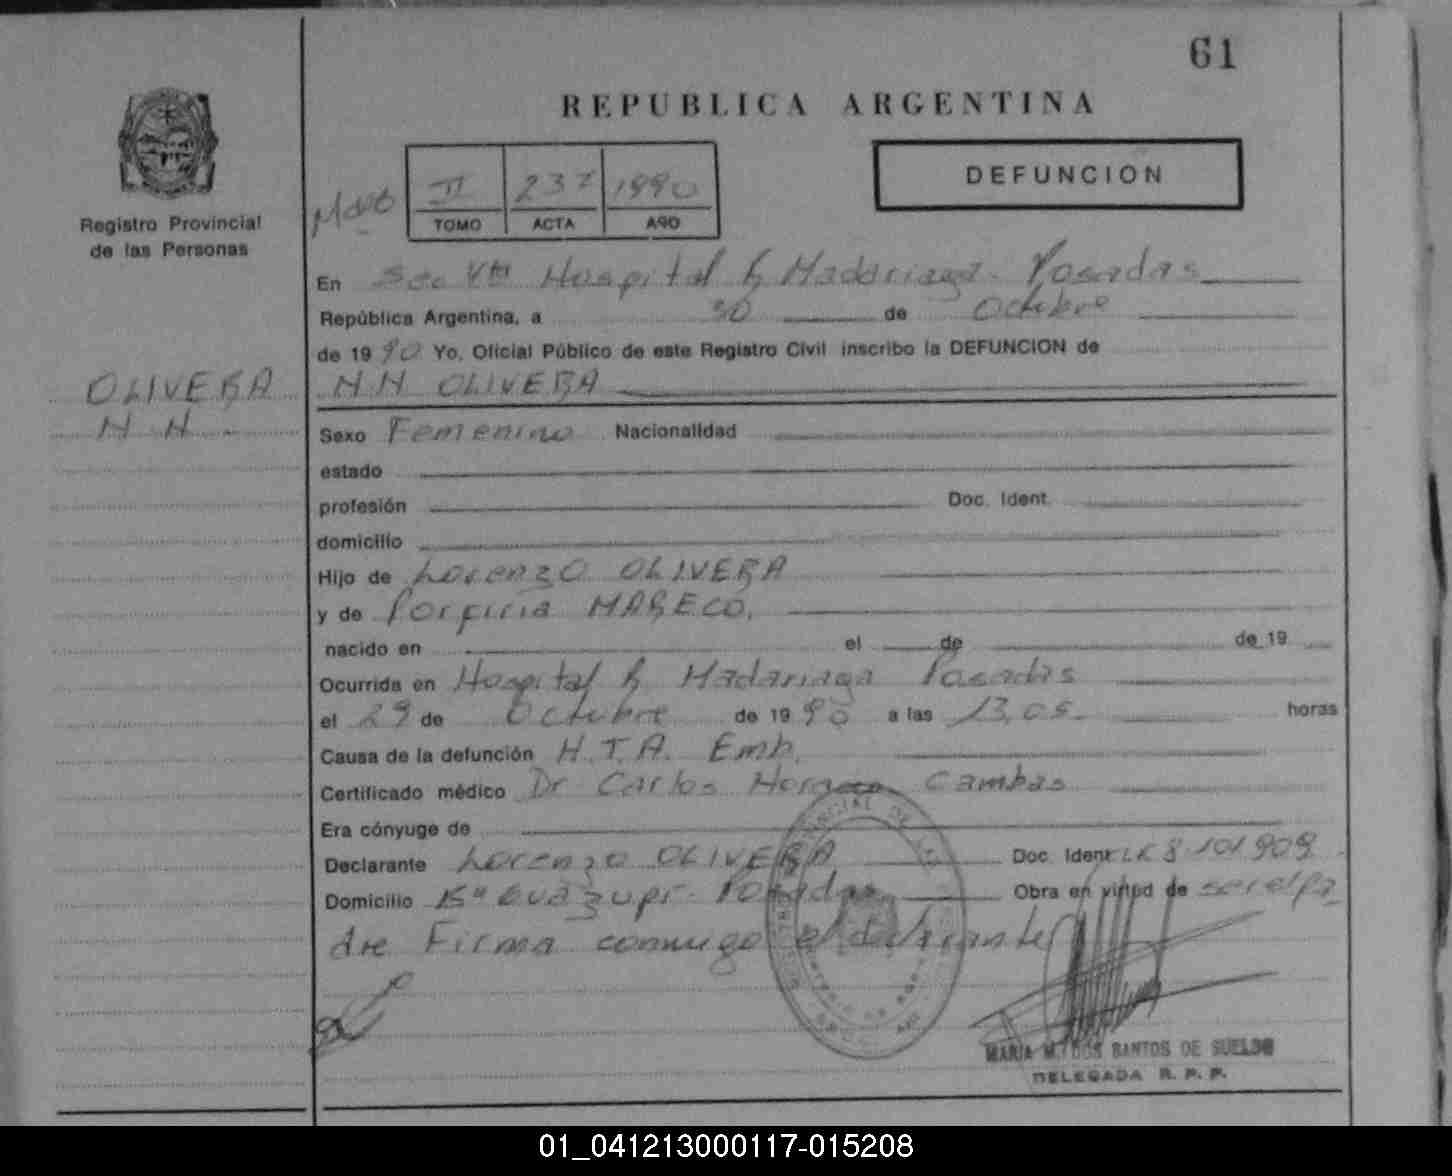 61
REPUBLICA ARGENTINA
DEFUNCION
II 237 1990
TOMO ACTA AÑO
Registro Provincial
de las Personas
En Sec Hospital R Madariaga. Posadas
República Argentina, a 30 de Octubre
de 1990 Yo, Oficial Público de este Registro Civil inscribo la DEFUNCION de
OLIVERA
N N
N N OLIVERA
Sexo Femenino Nacionalidad
estado
profesión Doc. Ident.
domicilio
Hijo de Lorenzo OLIVERA
y de Porfiria MARECO.
nacido en el de de 19
Ocurrida en Hospital R Madariaga Posadas
el 29 de Octubre de 1990 a las 13,05 horas
Causa de la defunción H.T.A. Emb.
Certificado médico Dr Carlos Cambas
Era cónyuge de
Declarante Lorenzo OLIVERA Doc. Ident 8.101.909
Domicilio Bº Posadas Obra en virtud de ser el pa
dre Firma conmigo el declarante
MARIA M. DOS SANTOS DE SUELDO
DELEGADA R. P. P.
01_041213000117-015208